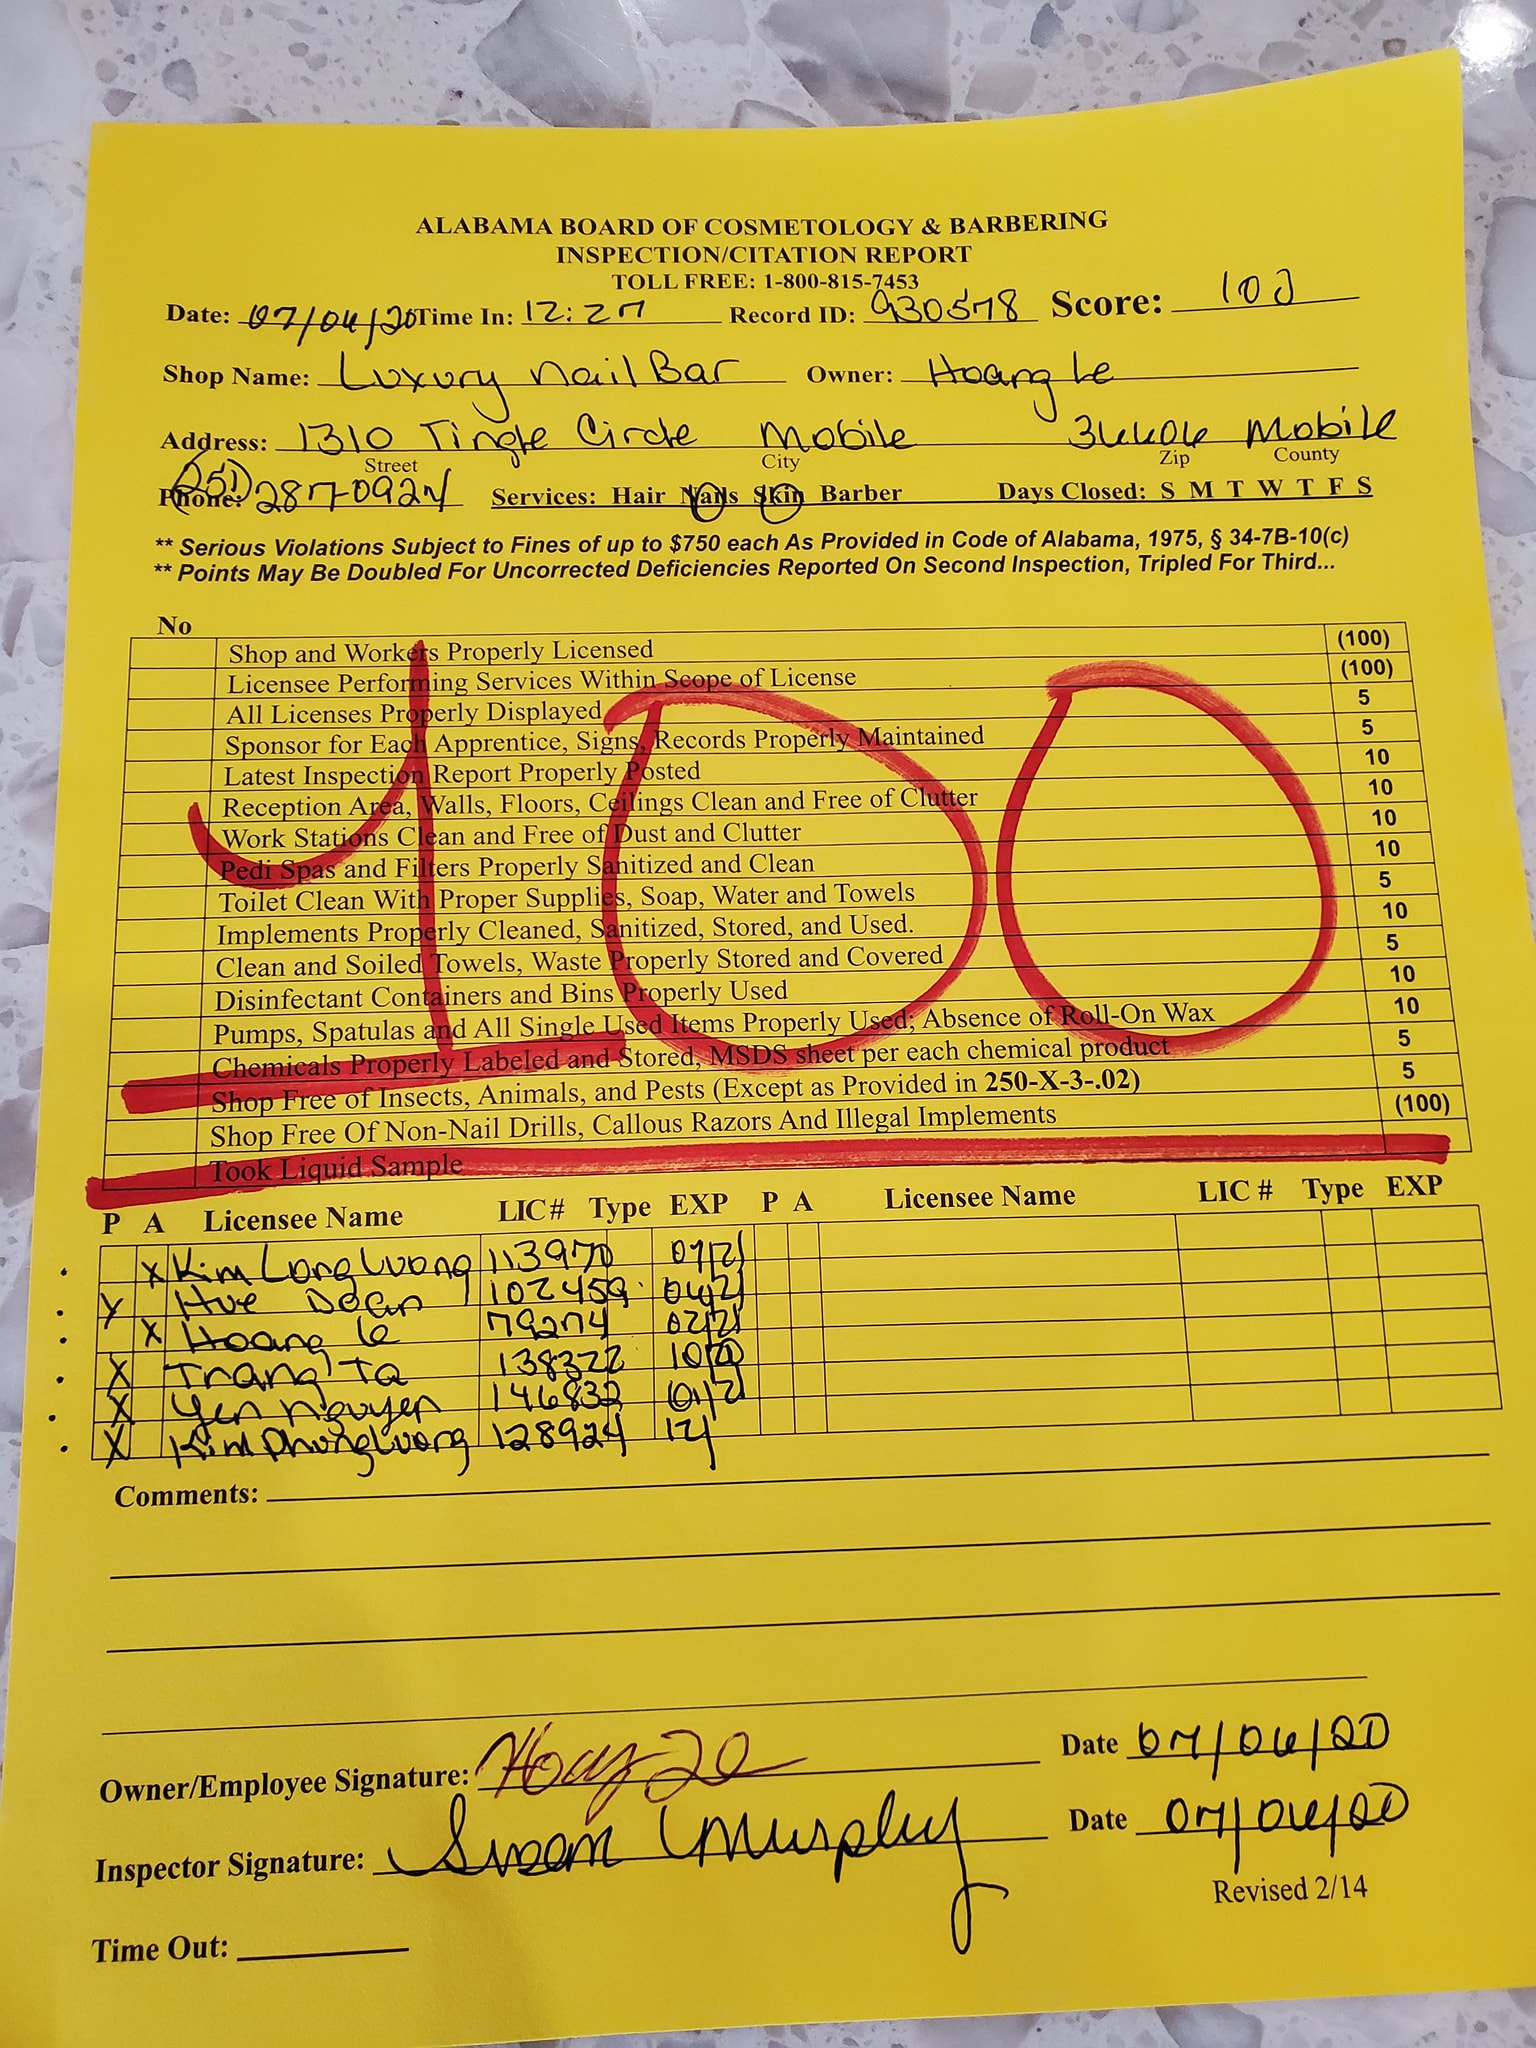 ALABAMA BOARD OF COSMETOLOGY & BARBERING
INSPECTION/CITATION REPORT
TOLL FREE: 1-800-815-7453
Date: 07/06/20 Time In: 12:27 Record ID: 930578 Score: 100
Shop Name: Luxury Nail Bar Owner: Hoang Le
Address: 1310 Tingle Circle Mobile 36606 Mobile
Street City Zip County
Phone: (251) 287-0924 Services: Hair Nails Skin Barber Days Closed: S M T W T F S
** Serious Violations Subject to Fines of up to $750 each As Provided in Code of Alabama, 1975, § 34-7B-10(c)
** Points May Be Doubled For Uncorrected Deficiencies Reported On Second Inspection, Tripled For Third...
No
Shop and Workers Properly Licensed (100)
Licensee Performing Services Within Scope of License (100)
All Licenses Properly Displayed 5
Sponsor for Each Apprentice, Signs, Records Properly Maintained 5
Latest Inspection Report Properly Posted 10
Reception Area, Walls, Floors, Ceilings Clean and Free of Clutter 10
Work Stations Clean and Free of Dust and Clutter 10
Pedi Spas and Filters Properly Sanitized and Clean 10
Toilet Clean With Proper Supplies, Soap, Water and Towels 5
Implements Properly Cleaned, Sanitized, Stored, and Used. 10
Clean and Soiled Towels, Waste Properly Stored and Covered 5
Disinfectant Containers and Bins Properly Used 10
Pumps, Spatulas and All Single Used Items Properly Used; Absence of Roll-On Wax 10
Chemicals Properly Labeled and Stored, MSDS sheet per each chemical product 5
Shop Free of Insects, Animals, and Pests (Except as Provided in 250-X-3-.02) 5
Shop Free Of Non-Nail Drills, Callous Razors And Illegal Implements (100)
Took Liquid Sample
100
P A Licensee Name LIC # Type EXP P A Licensee Name LIC # Type EXP
X Kim Long Luong 113970 07/21
X Hue Doan 102459 04/21
X Hoang Le 79274 02/21
X Trang Ta 138322 10/20
X Yen Nguyen 146832 01/21
X Kim Phung Luong 128924 12/
Comments:
Owner/Employee Signature: Hoang Le Date 07/06/20
Inspector Signature: Susan Murphy Date 07/06/20
Revised 2/14
Time Out: